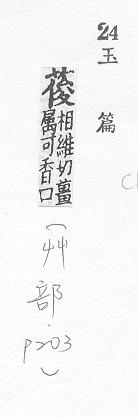 24
玉篇
葰
相維切薑
属可香口
(艸部.p203)